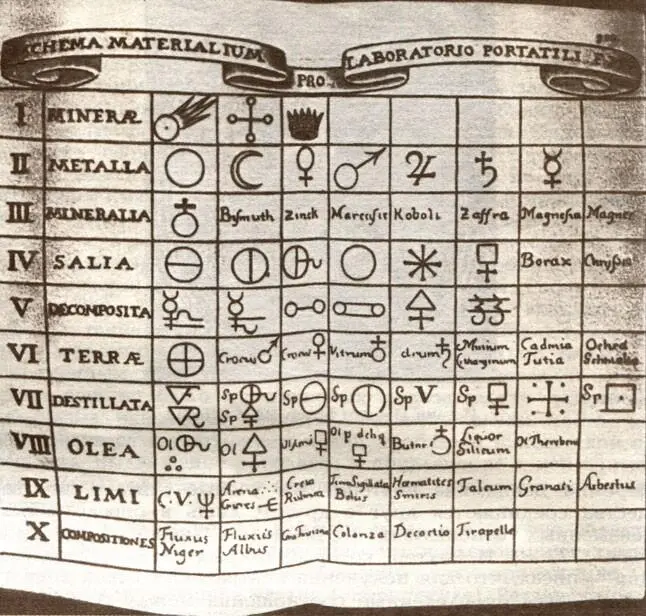 SCHEMA MATERIALIUM PRO LABORATORIO PORTATILI
I MINERÆ
II METALLA
III MINERALIA Bysmuth Zinck Marcasit Kobolt Zaffra Magnesia Magnes
IV SALIA Borax Chrysoc
V DECOMPOSITA
VI TERRÆ Crocus Crocus Vitrum Cadmia Tutia Ochra
VII DESTILLATA Sp Sp Sp Sp Sp Sp Sp
VIII OLEA Ol Ol Ol p delig Butyr Liquor Silicum Ol Therebent
IX LIMI C.V. Arena Creta Rubrica Terra Sigillata Bolus Hæmatites Smiris Talcum Granati Asbestus
X COMPOSITIONES Fluxus Niger Fluxus Albus Colanza Decoctio Tirapelle